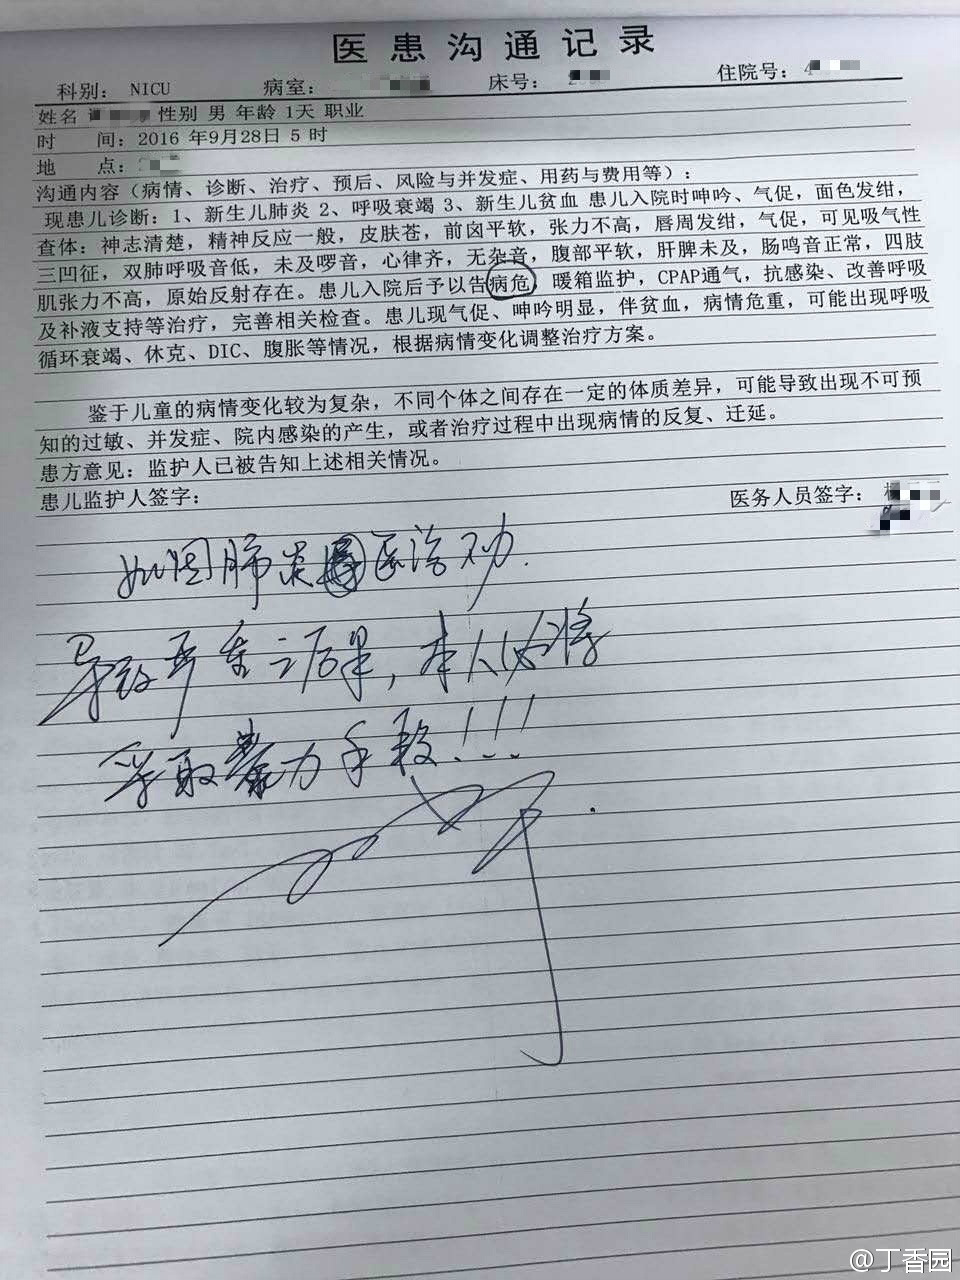 医患沟通记录
科别： NICU 病室： 床号： 住院号：
姓名 性别 男 年龄 1天 职业
时 间：2016 年9月28日 5 时
地 点：
沟通内容（病情、诊断、治疗、预后、风险与并发症、用药与费用等）：
现患儿诊断：1、新生儿肺炎 2、呼吸衰竭 3、新生儿贫血 患儿入院时呻吟、气促，面色发绀，
查体：神志清楚，精神反应一般，皮肤苍，前囟平软，张力不高，唇周发绀，气促，可见吸气性
三凹征，双肺呼吸音低，未及啰音，心律齐，无杂音，腹部平软，肝脾未及，肠鸣音正常，四肢
肌张力不高，原始反射存在。患儿入院后予以告病危 暖箱监护，CPAP通气，抗感染、改善呼吸
及补液支持等治疗，完善相关检查。患儿现气促、呻吟明显，伴贫血，病情危重，可能出现呼吸
循环衰竭、休克、DIC、腹胀等情况，根据病情变化调整治疗方案。
鉴于儿童的病情变化较为复杂，不同个体之间存在一定的体质差异，可能导致出现不可预
知的过敏、并发症、院内感染的产生，或者治疗过程中出现病情的反复、迁延。
患方意见：监护人已被告知上述相关情况。
患儿监护人签字： 医务人员签字：
如因肺炎医治不力.
导致严重之后果，本人必将
采取暴力手段！！！
@丁香园